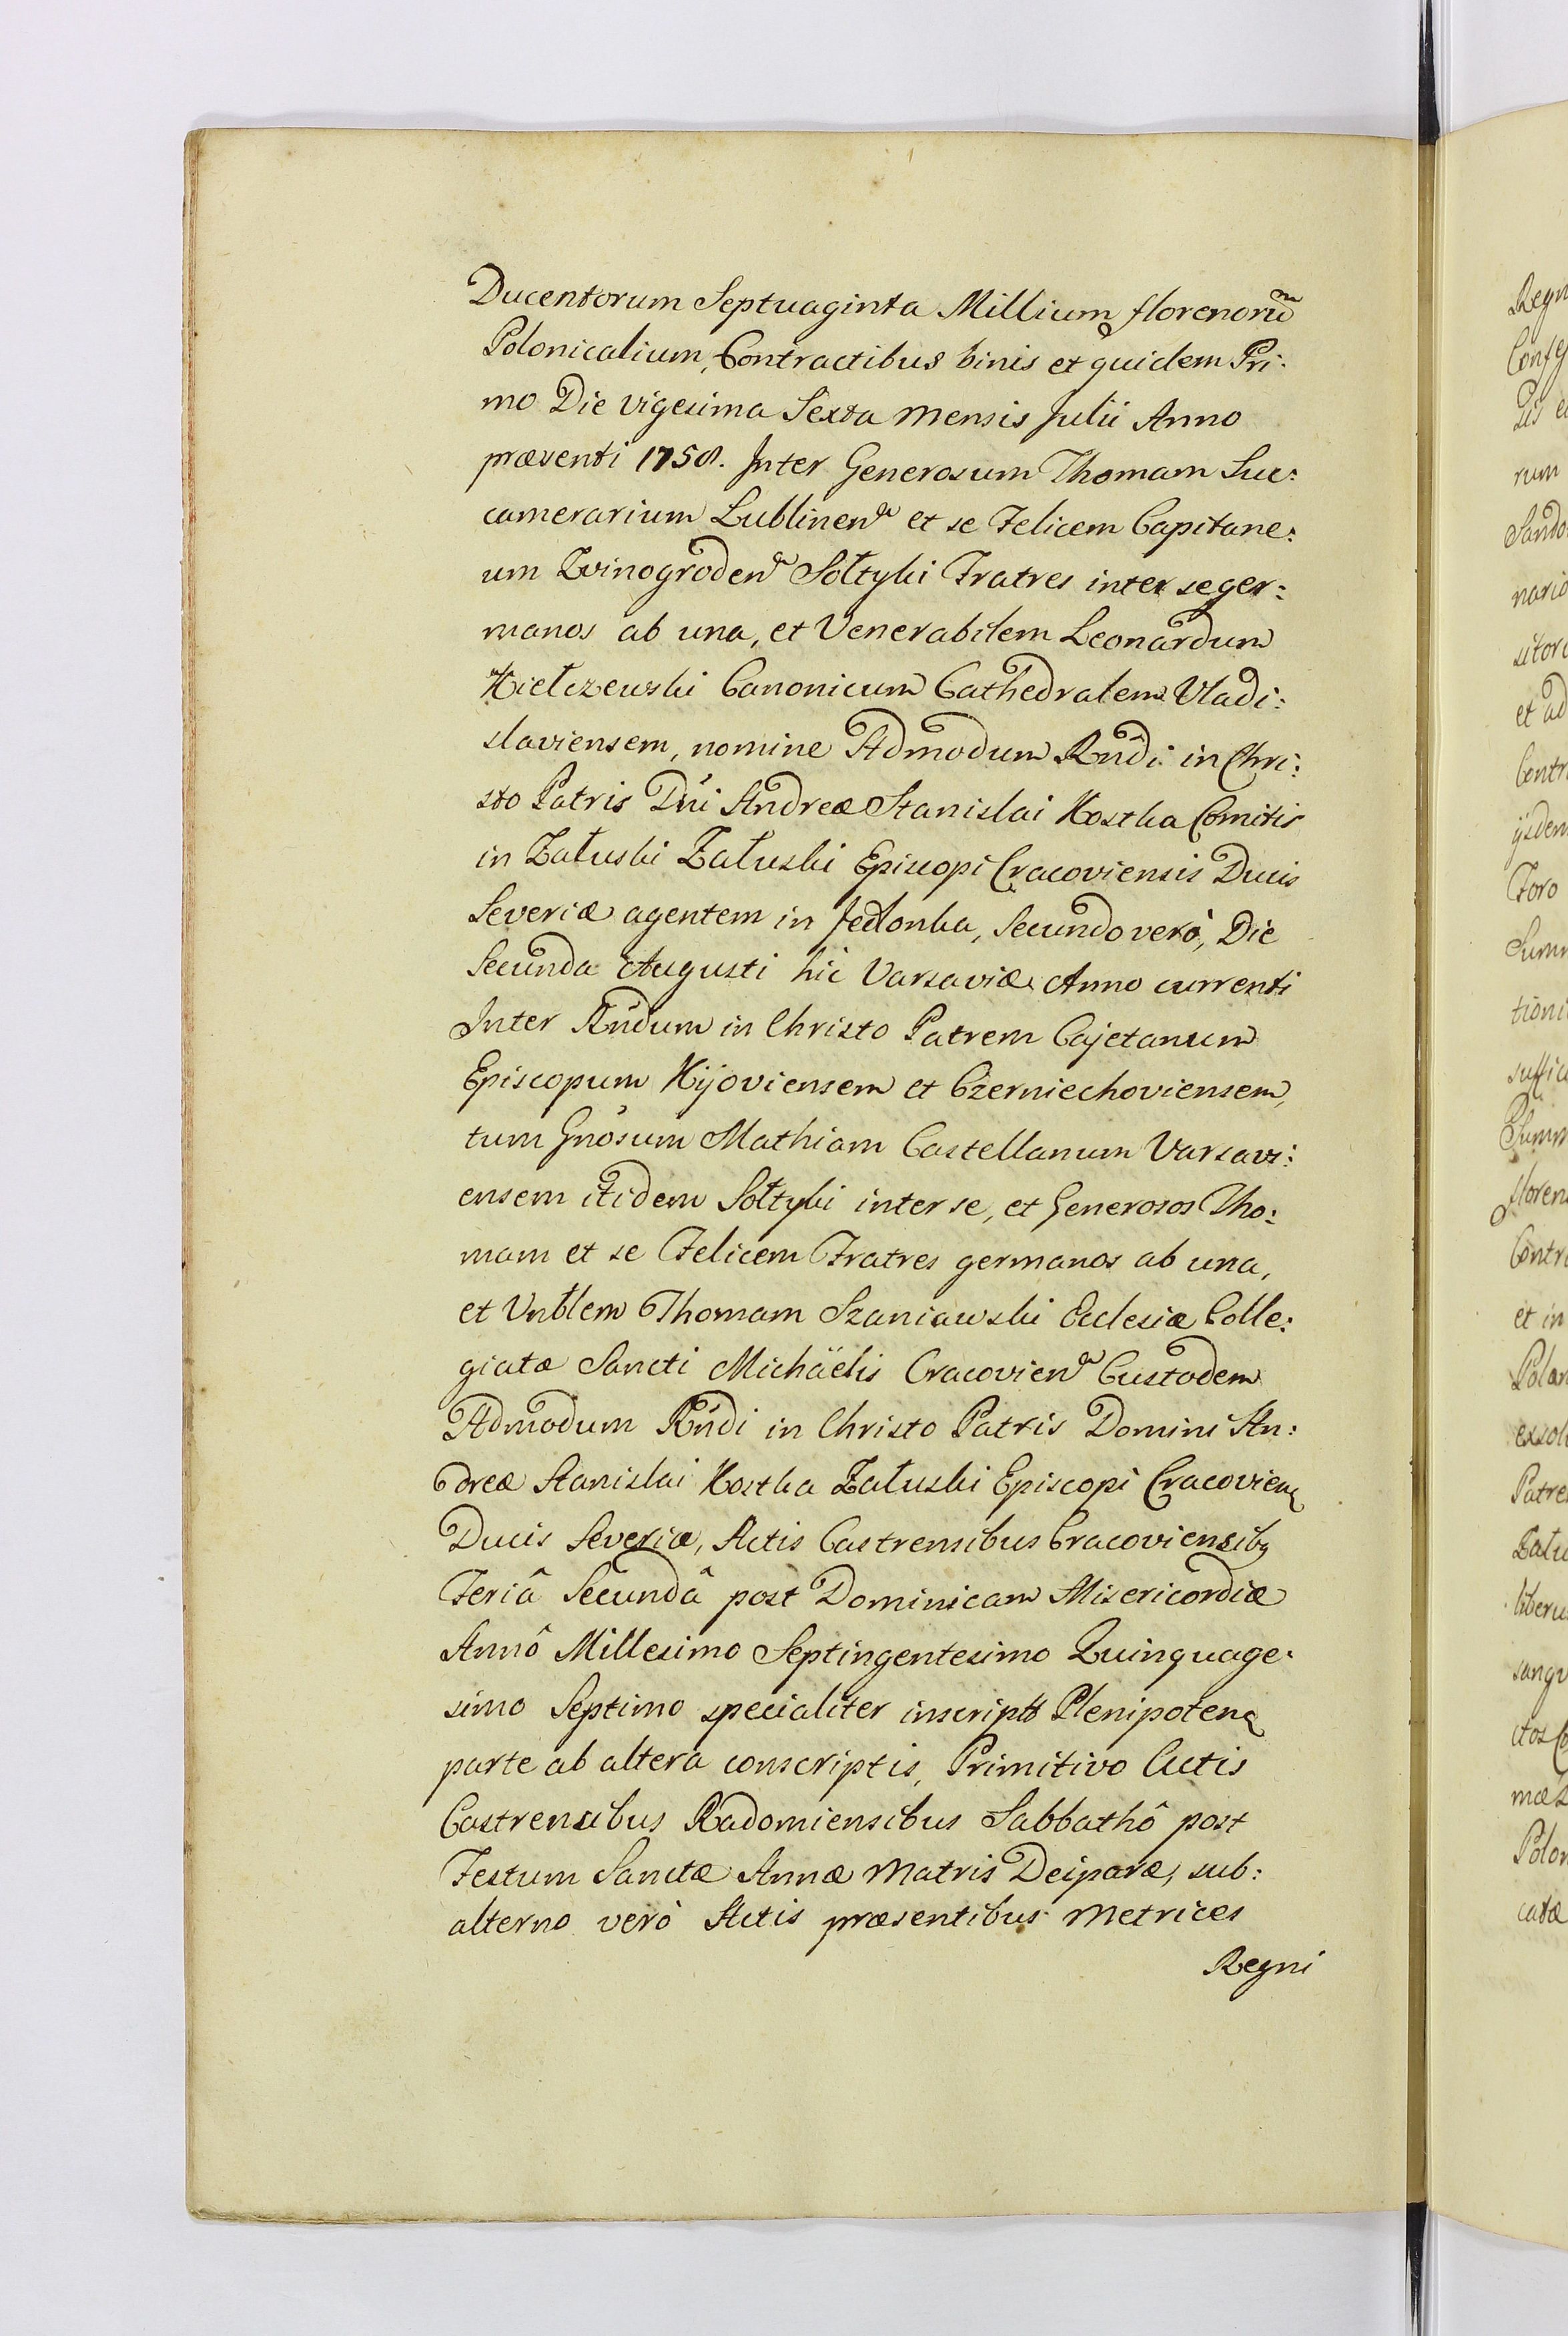 Ducentorum Septuaginta Millium florenorũ
Polonicalium, Contractibus binis et quidem Pri:
mo Die vigesima Sexta mensis Julii Anno
præsenti 1758. Inter Generosum Thomam Suc:
camerarium Lublinen et se Felicem Capitane:
um Zvinogroden Sołtyki Fratres inter se ger:
manos ab una, et Venerabilem Leonardum
Kiełczewski Canonicum Cathedralem Vladi:
slaviensem, nomine Admodum Rndi in Chri:
sto Patris Dni Andreæ Stanislai Kostka Comitis
in Załuski Załuski Episcopi Cracoviensis Ducis
Severiæ agentem in Jedlonka, Secundo verò, Die
Secunda Augusti hic Varsaviæ Anno currenti
Inter Rndum in Christo Patrem Cajetanum
Episcopum Kijoviensem et Czerniechoviensem,
tum Gnosum Mathiam Castellanum Varsavi:
ensem itidem Sołtyki inter se, et Generosos Tho:
mam et se Felicem Fratres germanos ab una,
et Vnblem Thomam Szaniawski Ecclesiæ Colle:
giatæ Sancti Michäelis Cracovien Custodem
Admodum Rndi in Christo Patris Domini An:
dreæ Stanislai Kostka Załuski Episcopi Cracovien
Ducis Severiæ, Actis Castrensibus Cracoviensibq
Feriâ Secundâ post Dominicam Misericordiæ
Annô Millesimo Septingentesimo Quinquage:
simo Septimo specialiter inscriptt Plenipoten
parte ab altera conscriptis, Primitivo Actis
Castrensibus Radomiensibus Sabbathô post
Festum Sanctæ Annæ Matris Deiparæ, sub:
alterno verò Actis præsentibus Metrices
Regni